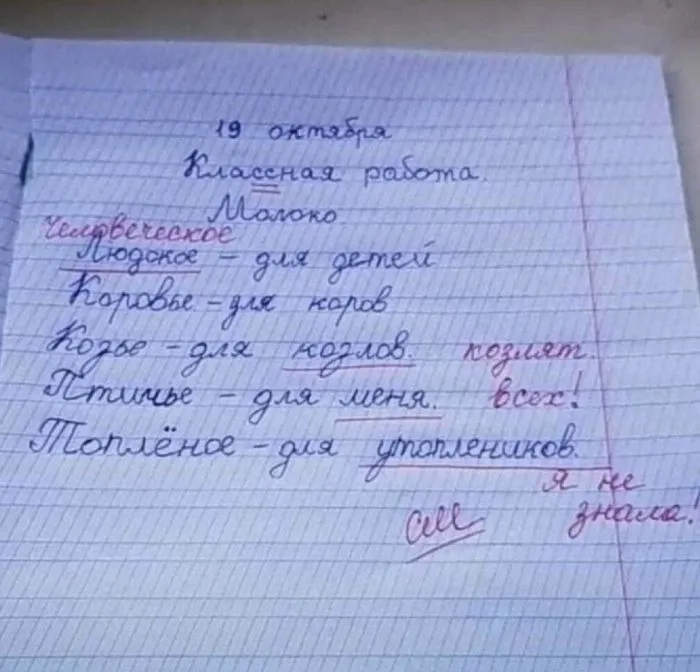 19 октября
Классная работа.
Молоко
Человеческое
Людское – для детей
Коровье – для коров
Козье – для козлов. козлят.
Птичье – для меня. всех!
Топлёное – для утоплеников.
я не
знала!
см